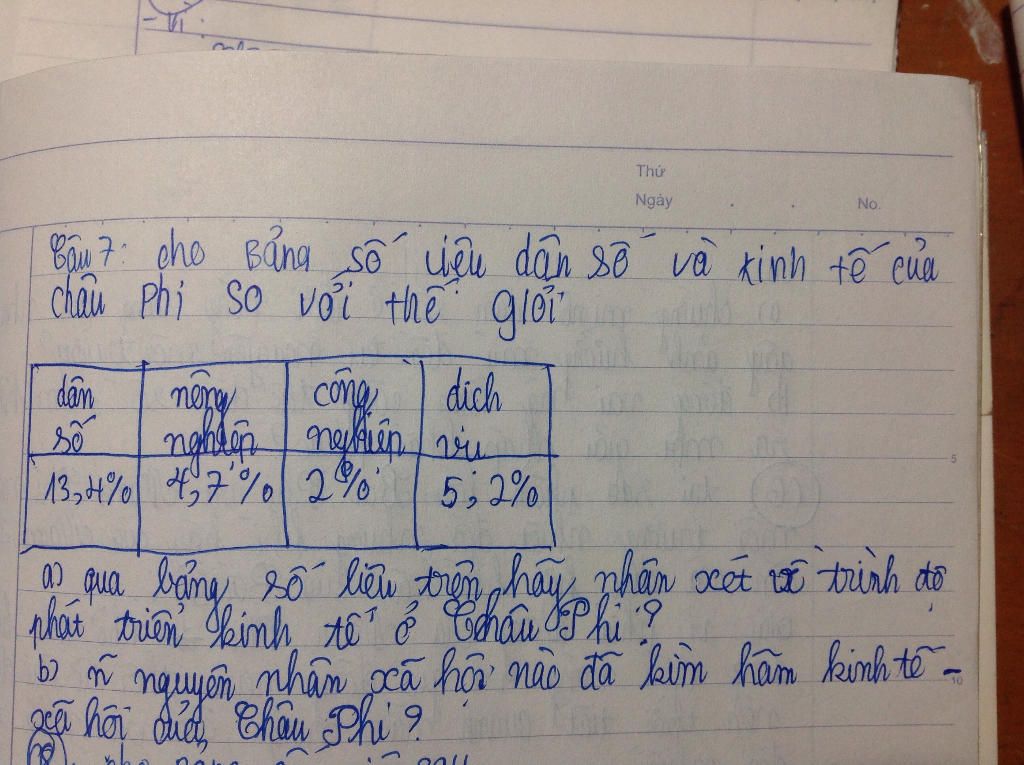 Thứ
Ngày . . No.
Câu 7: cho Bảng số liệu dân số và kinh tế của
châu phi so với thế giới
dân số nông nghiệp công nghiệp dich vu
13,4% 4,7% 2% 5,2%
a) qua bảng số liệu trên hãy nhận xét về trình độ
phát triển kinh tế ở Châu Phi?
b) n~ nguyên nhân xã hội nào đã kìm hãm kinh tế -
xã hôi của Châu Phi?